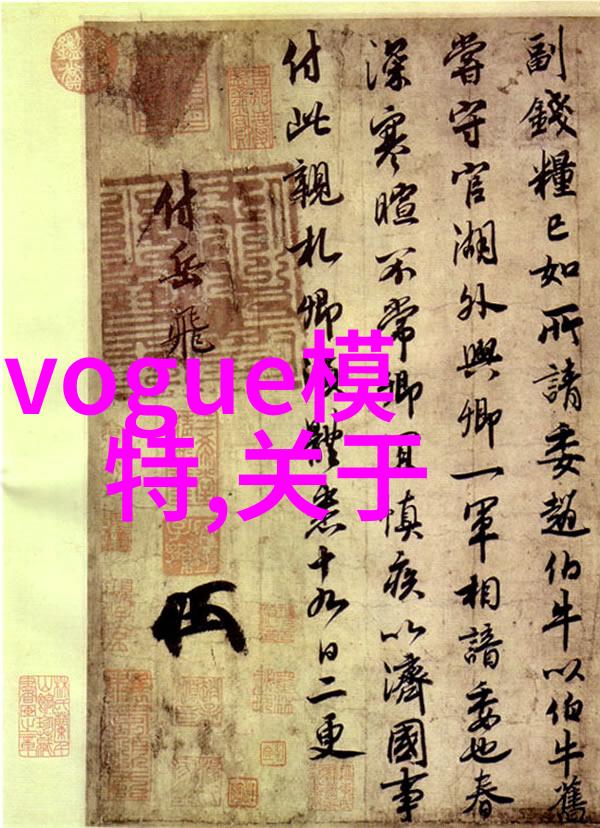 副錢糧已如所請委趙伯牛以伯牛舊
嘗守官湖外與卿一軍相諳委也春
深寒暄不常卿宜慎疾以濟國事
付此親札卿須體悉十九日二更
付岳飛
vogue模
特,关于